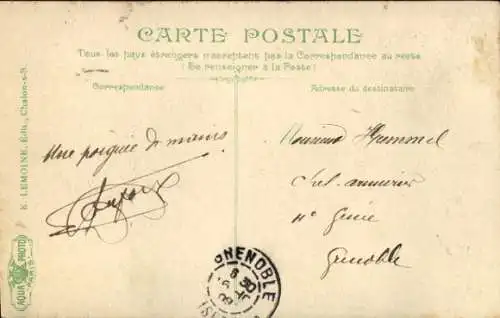 CARTE POSTALE
Tous les pays étrangers n'acceptent pas la Correspondance au recto
(Se renseigner à la Poste)
Correspondance
Adresse du destinataire
Une poignée de mains
Monsieur Hummel
Chef armurier
4e Génie
Grenoble
K. LEMOINE, Édit., Chalon-s-S.
AQUA PHOTO
PARIS
GRENOBLE